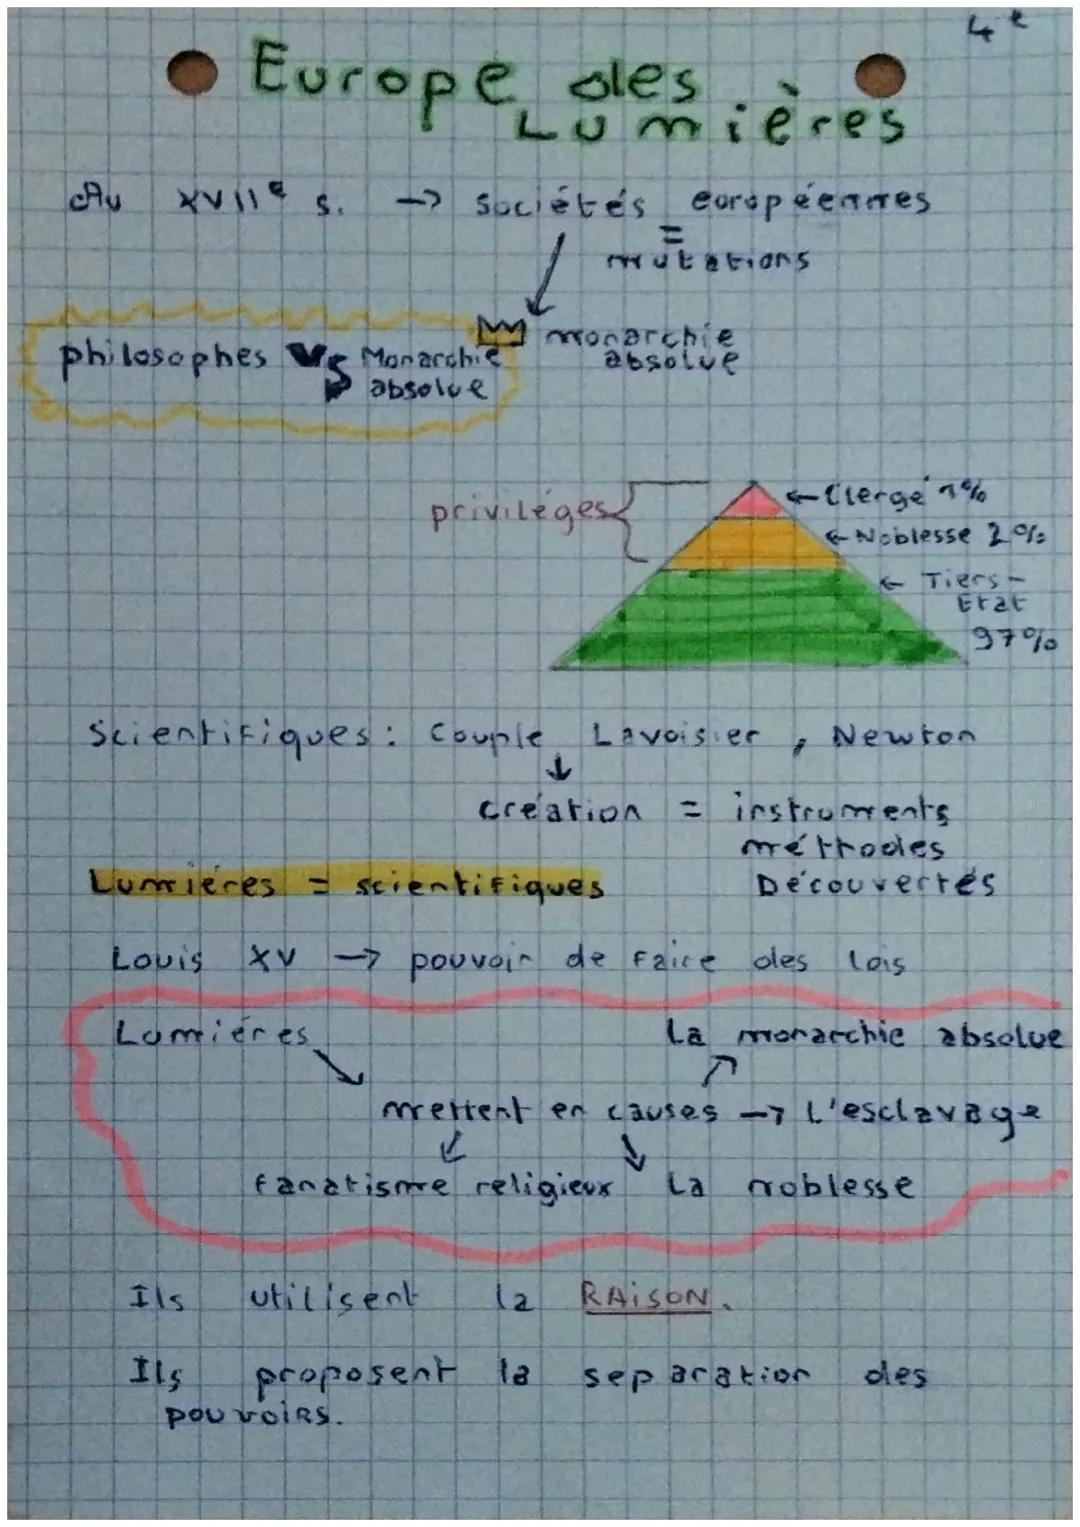 4e
Europe des
Lumières
Au XVIIe s. -> sociétés européennes
=
mutations
monarchie
absolue
philosophes Vs Monarchie
absolue
privilèges
<- Clergé 1%
<- Noblesse 2%
<- Tiers-
Etat
97%
Scientifiques : Couple Lavoisier, Newton
↓
création = instruments
méthodes
Découvertes
Lumières = scientifiques
Louis XV -> pouvoir de faire des lois
Lumières
La monarchie absolue
mettent en causes -> L'esclavage
fanatisme religieux
La noblesse
Ils utilisent la RAISON.
Ils proposent la separation des
pouvoirs.